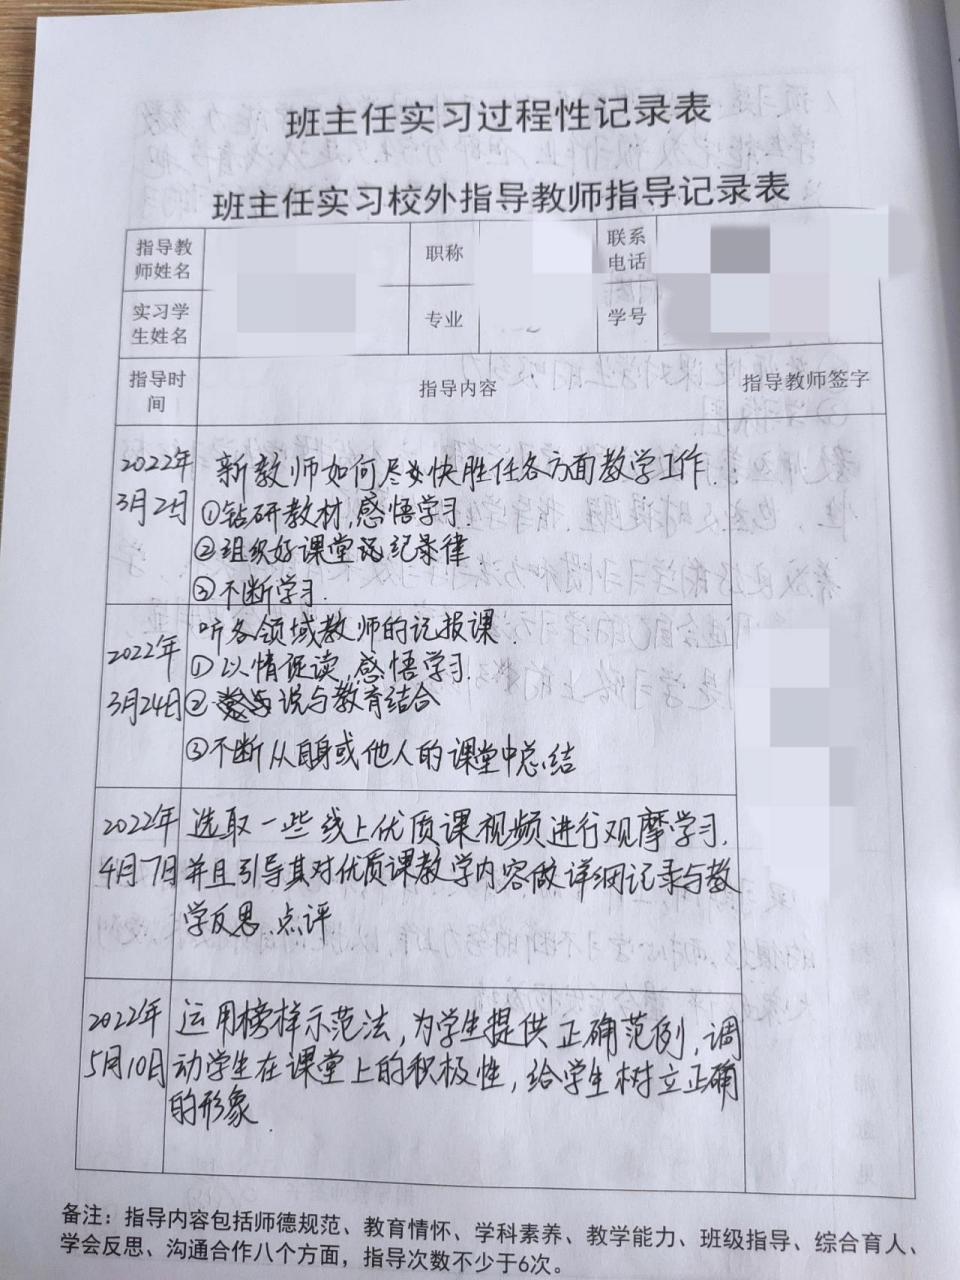 班主任实习过程性记录表
班主任实习校外指导教师指导记录表
指导教
师姓名
职称
联系
电话
实习学
生姓名
专业
学号
指导时
间
指导内容
指导教师签字
2022年
3月2日
新教师如何尽快胜任各方面教学工作
①钻研教材,感悟学习.
②组织好课堂纪律
③不断学习.
2022年
3月24日
听各领域教师的记报课.
①以情促读,感悟学习.
②说与教育结合
③不断从自身或他人的课堂中总结
2022年
4月7日
选取一些线上优质课视频进行观摩学习.
并且引导其对优质课教学内容做详细记录与教
学反思.点评.
2022年
5月10日
运用榜样示范法,为学生提供正确范例,调
动学生在课堂上的积极性,给学生树立正确
的形象.
备注：指导内容包括师德规范、教育情怀、学科素养、教学能力、班级指导、综合育人、
学会反思、沟通合作八个方面，指导次数不少于6次。